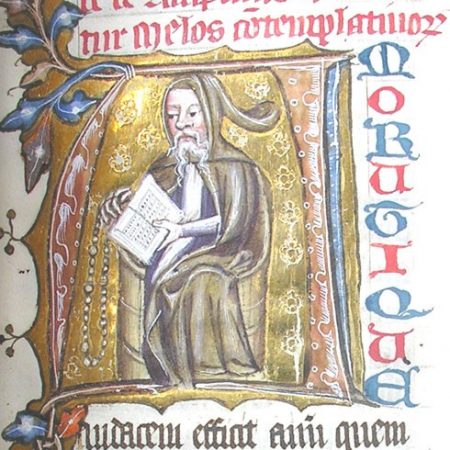 tur Melos cōtemplatiuoꝝ
AMORUTIQUE
Audacem efficit aīm quem